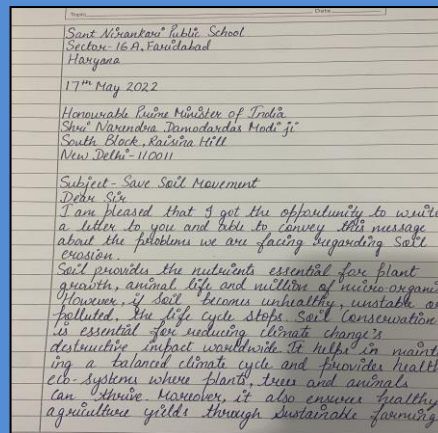 Sant Nirankari Public School
Sector-16A, Faridabad
Haryana
17th May 2022
Honourable Prime Minister of India
Shri Narendra Damodardas Modi ji
South Block, Raisina Hill
New Delhi-110011
Subject- Save Soil Movement
Dear Sir
I am pleased that I got the opportunity to write
a letter to you and able to convey this message
about the problems we are facing regarding Soil
erosion.
Soil provides the nutrients essential for plant
growth, animal life and million of micro organi
However, if soil becomes unhealthy, unstable or
polluted, the life cycle stops. Soil Conservation
is essential for reducing climate change's
destructive impact worldwide. It helps in maint
ing a balanced climate cycle and provides health
eco-systems where plants, trees and animals
can thrive. Moreover, it also ensures healthy
agriculture yields through sustainable farming